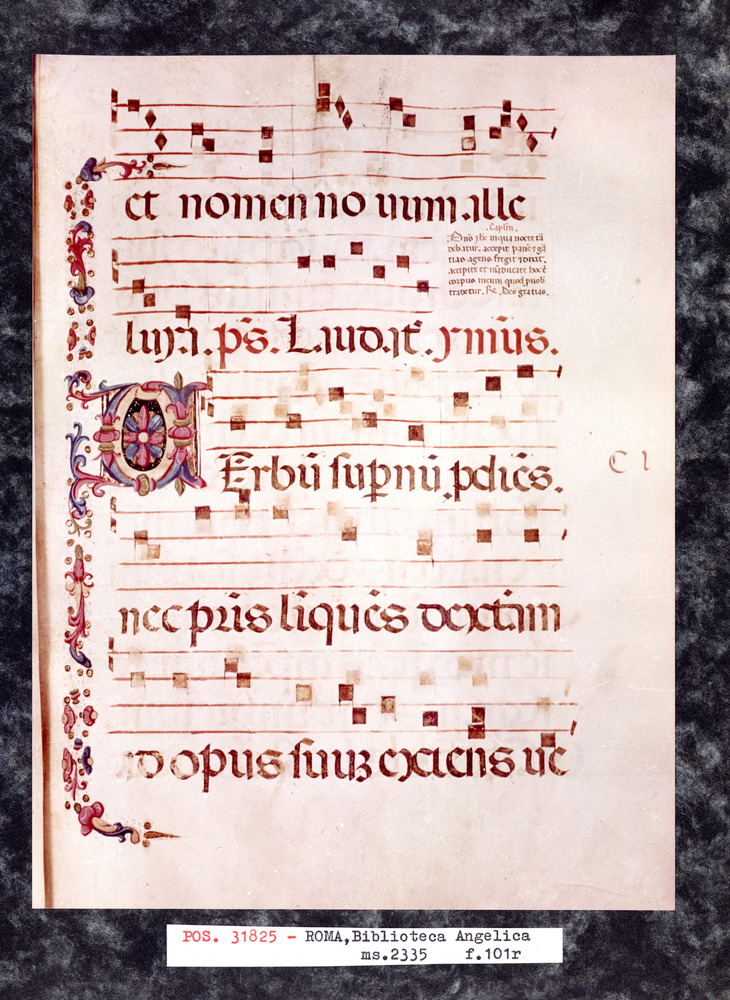 et nomen no uum.alle
.Caplm.
Dns yħc in qua nocte tā
debatur. accepit panē ⁊ gā
tias agens fregit ⁊ dixit.
accipite et māducate hoc ē
corpus meum quod ꝓ uob
tradetur. ℟. Deo gratias.
luya. ps. Laudat. ymnus.
UErbū sup̄nū ꝓdiēs.
nec pr̄is līquēs dextām
Ad opus suuꝫ exiens ue
CI
POS. 31825 - ROMA,Biblioteca Angelica
ms.2335 f.101r